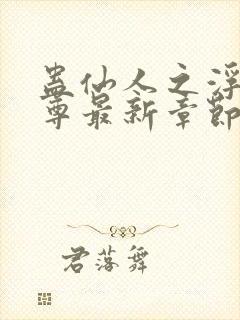 蛊仙人之浮
尊最新章节
君落舞